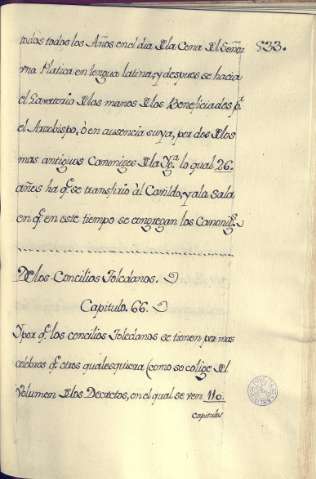 todos todos los Años en el dia de la Cena del Señor 533.
vna Platica en lengua latina, y despues se hacia
el Lavatorio de las manos de los Beneficiados pr.
el Arzobispo, ò en ausencia suya, por dos de los
mas antiguos Canoniges de la Yga. lo qual 26.
años ha qe. se transfirio àl Cavildo, y a la Sala
en qe. en este tiempo se congregan los Canonigs.
De los Concilios Toledanos.
Capitulo. 66.
Y por qe. los concilios Toledanos se tienen por mas
celebres qe. otros qualesquiera (como se colige del
Volumen de los Decretos, en el qual se ven 110.
capitulos